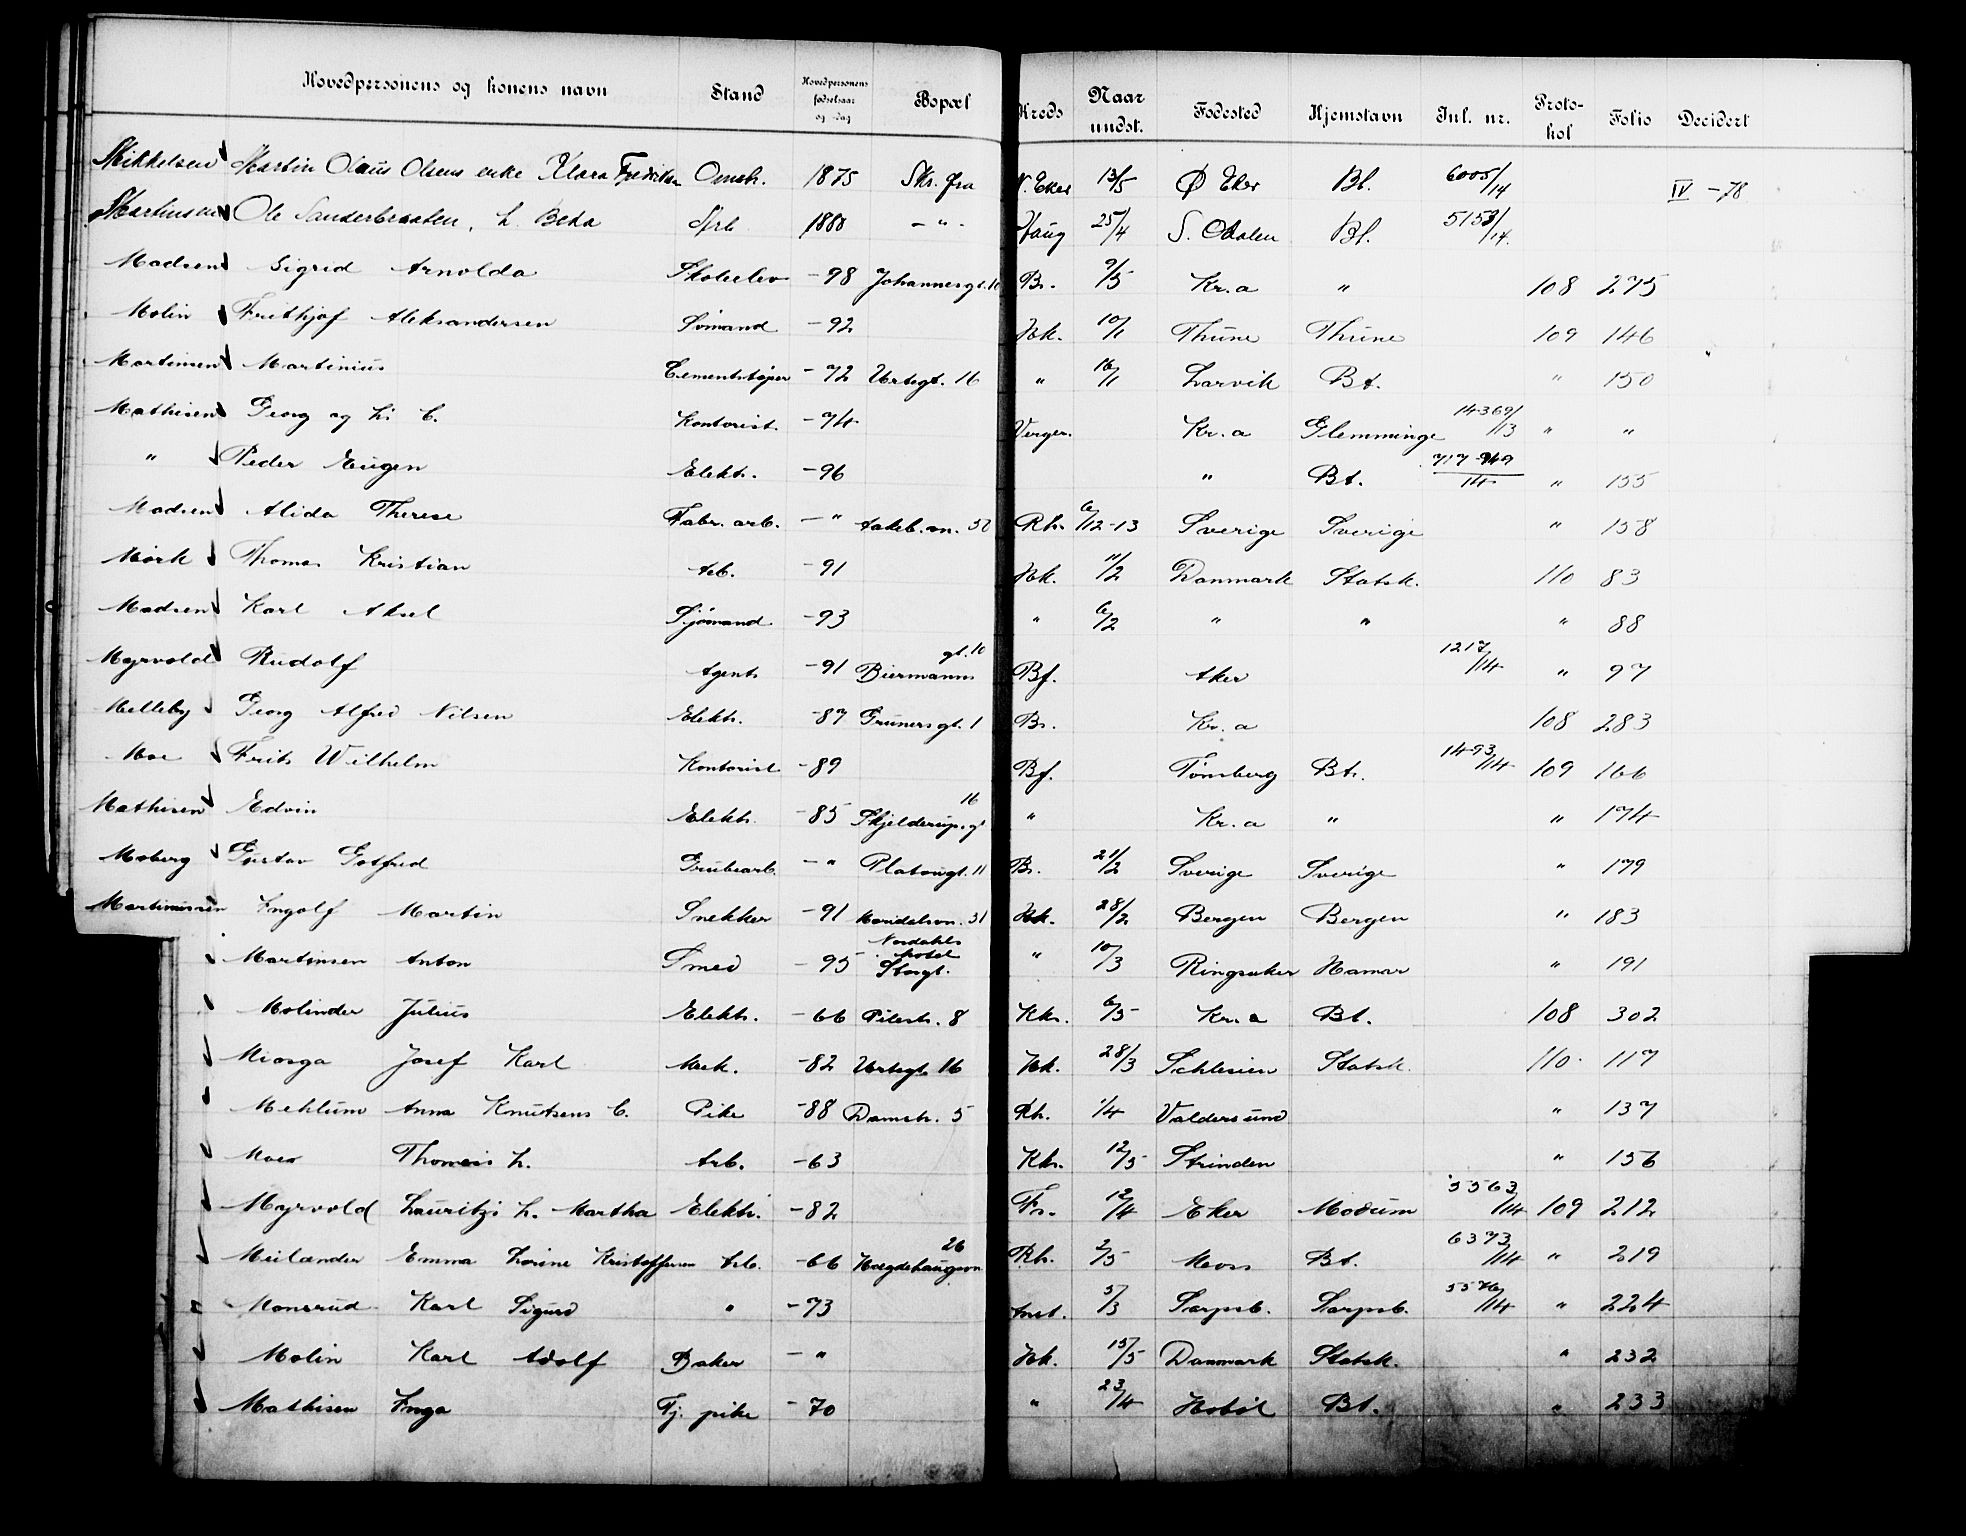 Hovedpersonens og konens navn | Stand | Hovedpersonens fødselsaar og -dag | Bopæl | Kreds | Naar undst. | Fødested | Hjemstavn | Jnl. nr. | Protokol | Folio | Decidert
Mikkelsen Martin Olaus Olsens enke Klara Fredriksen Omstr. 1875 Skr. fra N. Eker 13/5 Ø Eker Bl. 6005/14 IV -78
Martinsen Ole Sanderbraaten, h. Beda 1880 - " - Haug 25/4 S. Odalen Bl. 5153/14
Madsen Sigrid Arnolda Skoleelev -98 Johannesgt. Br. 9/5 Kr.a " 108 275
Molin Frithjof Aleksandersen Sømand -92 Hk. 10/1 Thune Thune 109 146
Martinsen Martinius Cementstøper -72 Urtegt. 16 " 16/1 Larvik Bt. " 150
Mathisen Georg og h. C. Kontorist -74 Verger. Kr.a Glemminge 14369/13 " "
" Peder Eugen Elektr. -96 " Bt. " 155
Madsen Alida Therese Fabr. arb. - " Rh. 6/12-13 Sverige Sverige " 158
Mørk Thomas Kristian Arb. -91 Hk. 11/2 Danmark Statsk. 110 83
Madsen Karl Aksel Sjømand -93 " 6/2 " " " 88
Myrvold Rudolf Agent -91 Biermanns gt. 10 Bf. Aker 1217/14 " 97
Melleby Georg Alfred Nilsen Elektr. -87 Grunersgt. 1 Br. Kr.a 108 283
Moe Frits Wilhelm Kontorist -89 Bf. Tønsberg Bt. 1493/14 109 166
Mathisen Edvin Elektr. -85 Skjelderupsgt 16 " Kr.a " " 174
Moberg Gustav Gotfred Grubearb. - " Platougt. 11 Br. 21/2 Sverige Sverige " 179
Martinussen Ingolf Martin Snekker -91 Maridalsvn. 31 Hk. 28/2 Bergen Bergen " 183
Martinsen Anton Smed -95 Nordahls hotel Storgt. " 10/3 Ringsaker Hamar " 191
Molinder Julius Elektr. -66 Pilestr. 8 Kk. 6/5 Kr.a Bt. 108 302
Miosga Josef Karl Mek. -82 Urtegt. 16 Hk. 28/3 Schlesien Statsk. 110 117
Mehlum Anna Knutsens C. Pike -88 Damstr. 5 Rh. 1/4 Valdersund " 137
Moen Thomas h. Arb. -63 Kk. 12/5 Strinden " 156
Myrvold Lauritz h. Martha Elektr. -82 Fr. 12/4 Eker Modum 5563/14 109 212
Meilænder Emma Lovine Kristoffersen Arb. -66 Hægdehaugsvn 26 Rh. 2/5 Moss Bt. 6373/14 " 219
Monsrud Karl Sigurd " -73 Anst. 5/3 Sarpsb. Sarpsb. 5576/14 " 224
Molin Karl Adolf Baker - " Hk. 15/5 Danmark Statsk. " 232
Mathisen Inga Tj. pike -70 " 23/4 Hobøl Bt. " 233